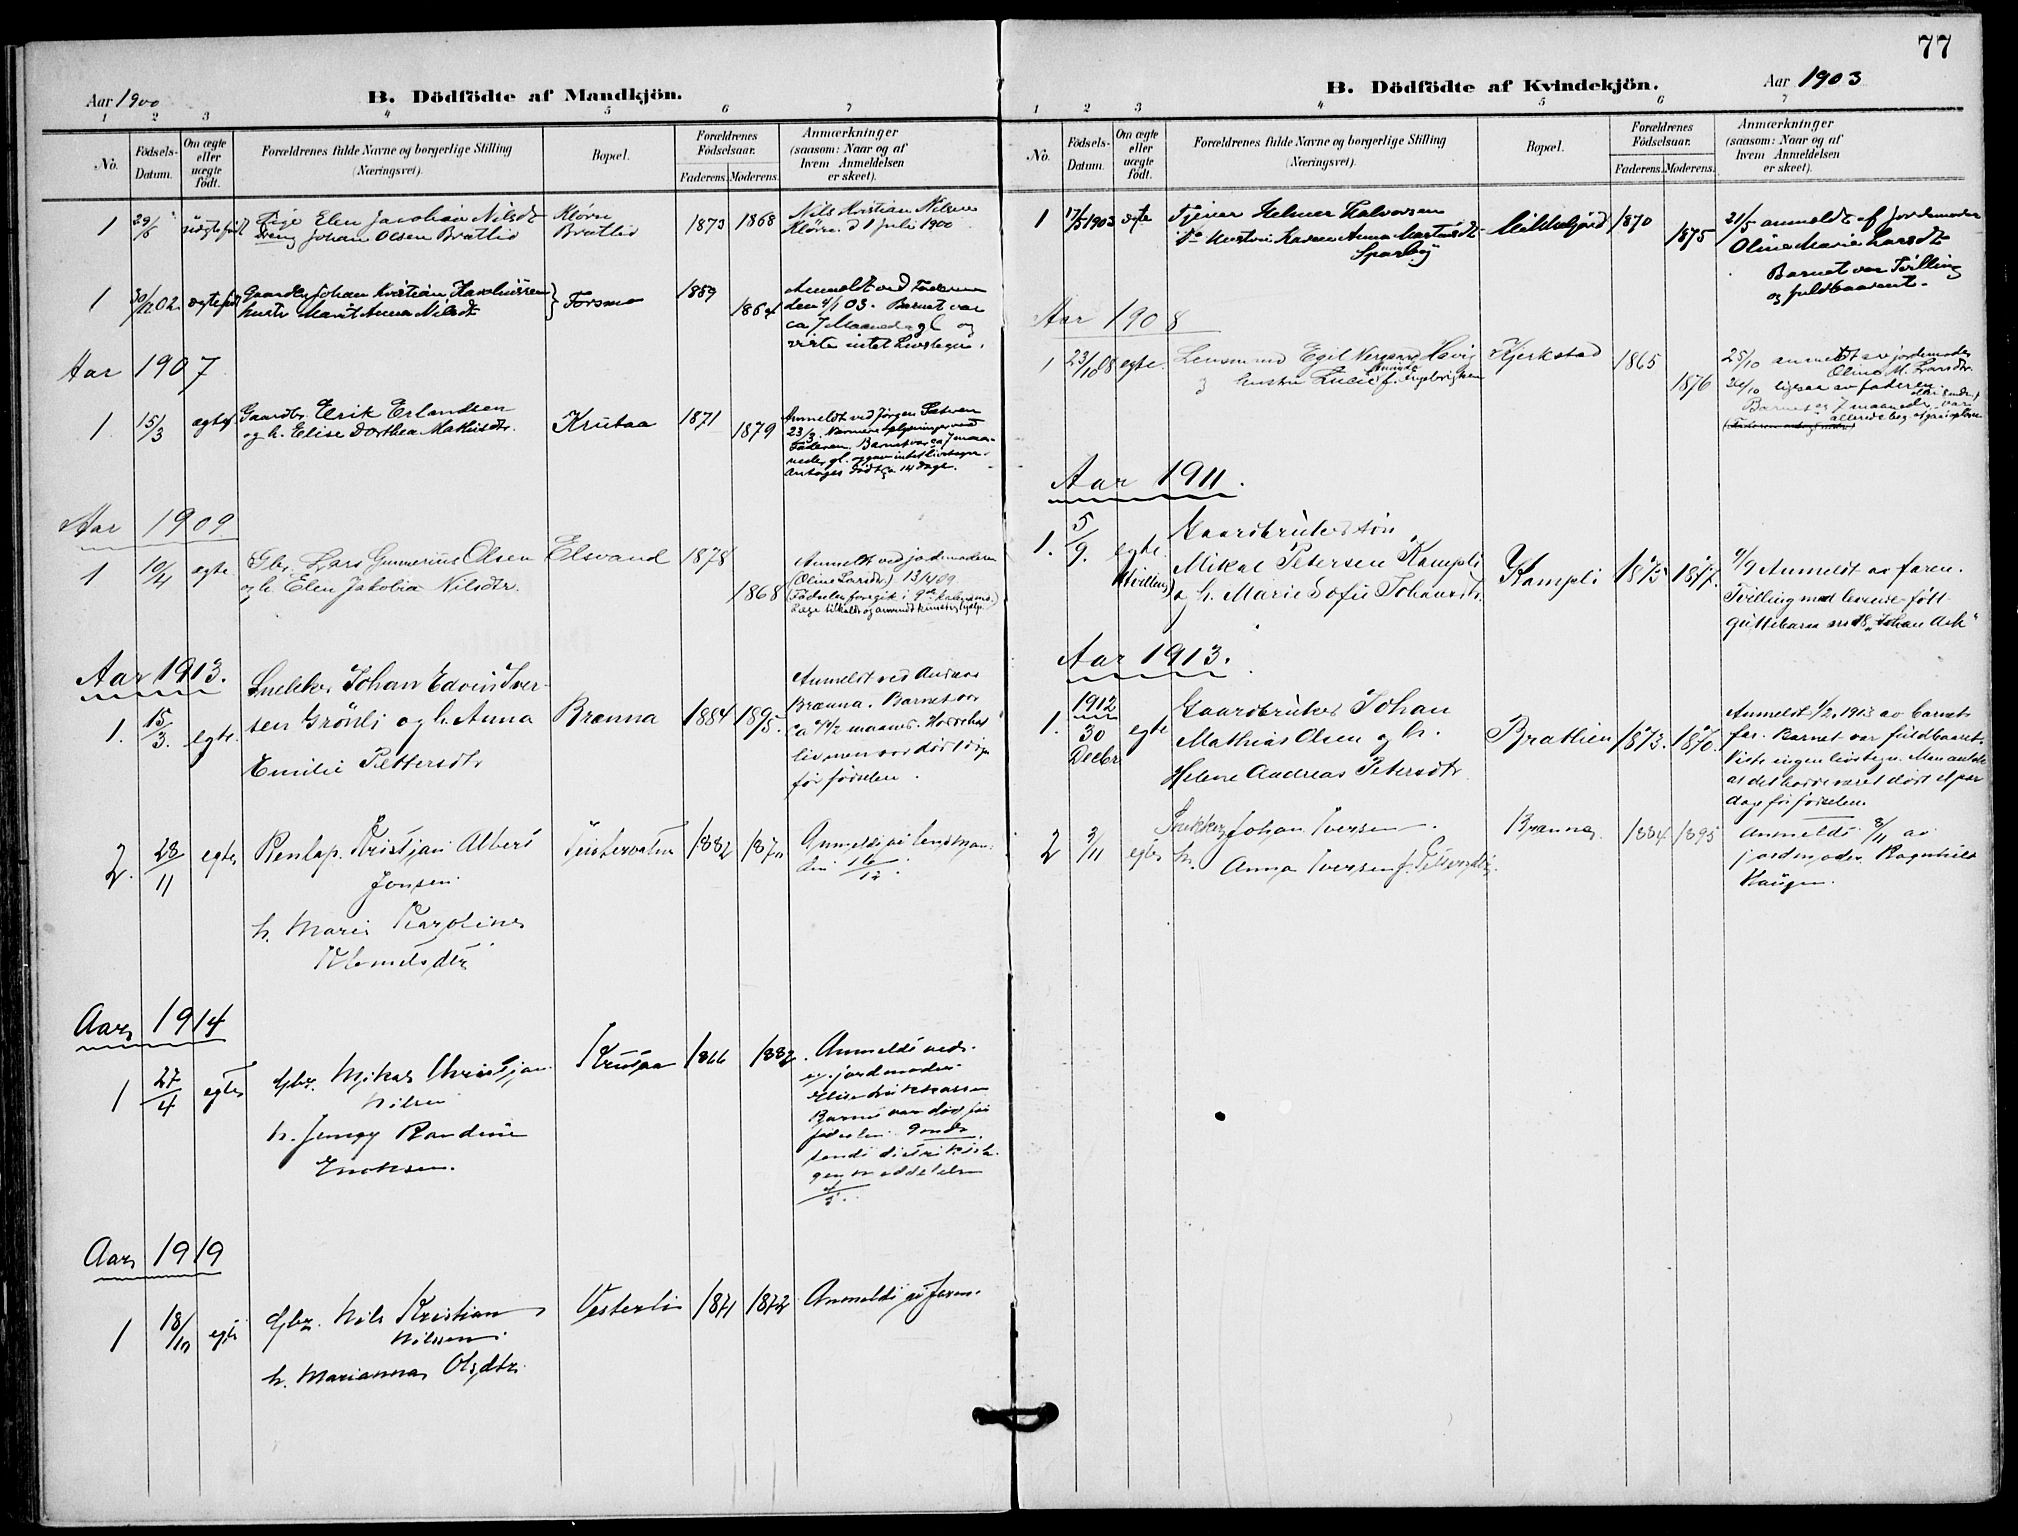 77
Aar 1900
B. Dödfödte af Mandkjön.
1 2 3 4 5 6 7
No.
Födsels-
Datum.
Om ægte
eller
uægte
födt.
Forældrenes fulde Navne og borgerlige Stilling
(Næringsvei).
Bopæl.
Forældrenes
Födselsaar.
Faderens. Moderens.
Anmærkninger
(saasom: Naar og af
hvem Anmeldelsen
er skeet).
1 29/6 uægtefödt Pige Elen Jacobia Nilsdt
Johan Olsen Bratlid
Bratlid
1873 1868
Nils Kristian Nilsen
d 1 Juli 1900
1 30/12 02. ægtefödt Gaardbr Johan Kristian
hustr Marit Anna Nilsdt
Forsmo
1869
1864
Anmeldt ved Faderen
den 4/1 03. Barnet var
ca 7 Maaneder gl og
viste intet Livstegn.
Aar 1907
1. 15/3 ægtef Gaardbr. Elrik Erlandsen
og h. Elise Dorthea
Krutaa
1871
1879
Anmeldt ved Jørgen
23/3. Nærmere oplysninger ved
Faderen. Barnet var ca 7 maa-
neder gl. og gav intet livstegn.
Antages Dödt ca 14 dage.
Aar 1909
1 10/4 ægte Gbr. Lars Gunnerius Olsen
og h. Elen Jakobia Nilsdtr.
Elsvand
1878
1868
Anmeldt ved jordmoderen
(Oline Larsdtr.) 13/4 09.
(Födselen foregik i 9de
Læge tilkaldt og anvendt kunstig hjelp.
Aar 1913.
1. 15/3. egte. Snekker Johan Edvin Iver-
sen Grönli og h. Anna
Emilie Pettersdtr
Brænna
1884 1895.
Anmeldt ved Andreas
Brænna. Barnet var
ca 4 1/2 maaned. Hadde hat
liv men var død
før fødselen.
2. 28/11 egte Kristjan Albert
Jonsen
h. Marie Karoline
Klemetsdtr
1882 1870
Anmeldt av lensman-
den 16/12.
Aar 1914
1 27/4 egte Gbr. Mikal Christjan
Nilsen
h. Jenny Randine
Enoksen.
Krutaa
1866 1882
Anmeldt ved
jordmoder
Barnet var død før
fødselen.
sendt
meddelelse
Aar 1919
1 18/10 egte Gbr. Nils Kristian
Nilssen.
h. Marianna Olsdtr.
Vesterli
1871 1872
Anmeldt av faren.
Aar 1903
B. Dödfödte af Kvindekjön.
1 2 3 4 5 6 7
No.
Födsels-
Datum.
Om ægte
eller
uægte
födt.
Forældrenes fulde Navne og borgerlige Stilling
(Næringsvei).
Bopæl.
Forældrenes
Födselsaar.
Faderens. Moderens.
Anmærkninger
(saasom: Naar og af
hvem Anmeldelsen
er skeet).
1 17/5 1903 ægte Helmer Halvorsen
Hustru Karen Anna
1870
1875
21/5 anmeldt af jordemoder
Oline Marie Larsdt
Barnet var Tvilling
og fuldbaarent.
Aar 1908
1 23/10 08 egte. Lensmand Egil Høvig
og hustru Lucie
Kjerkstad
1865
1876
25/10 anmeldt av jordemoder
Oline M. Larsdtr.
26/10 ligesaa av faderen.
Barnet ca 7 maaneder
Aar 1911.
1. 5/9. egte. (tvilling) Gaardbruker sön
Mikal Petersen Kampli
og h. Marie Sofie Johansdtr.
Kampli
1875 1877.
9/9 Anmeldt av faren.
Tvilling med levende fött
guttebarn no 18 „Johan
Aar 1913.
1. 1912
30 Decbr egte Gaardbruker Johan
Mathias Olsen og h.
Helene Andreas Petersdtr
Bratlien
1873. 1870.
Anmeldt 1/2 1913 av barnets
far. Barnet var fuldbaaret.
Viste ingen livstegn. Men antok
at det hadde været dödt et par
dage før fødselen.
2 3/11 egte Snekker Johan Iversen.
h. Anna Iversen f. Pettersdtr.
Brænna
1884 1895
Anmeldt 8/11 av
jordmoder Ragnhild
Haugen.